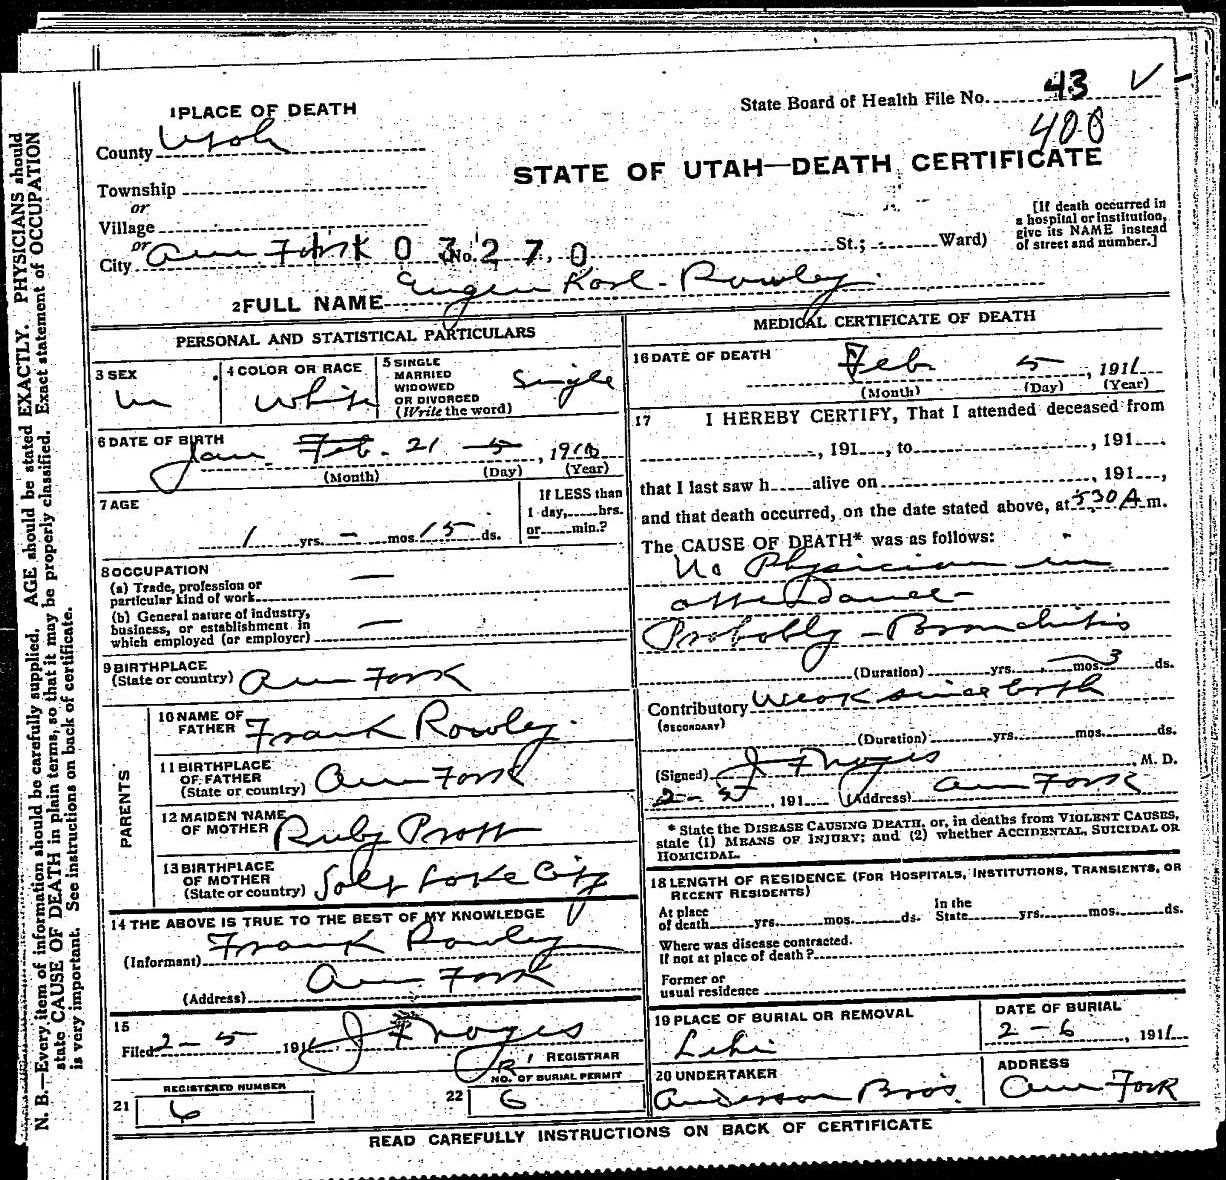 43 ✓
State Board of Health File No.
400
1 PLACE OF DEATH
County Utah
STATE OF UTAH—DEATH CERTIFICATE
Township
or
Village
or
City Am Fork 03270 No. St.; Ward)
[If death occurred in
a hospital or institution,
give its NAME instead
of street and number.]
2 FULL NAME Eugene Karl Rowley
PERSONAL AND STATISTICAL PARTICULARS
3 SEX
m
4 COLOR OR RACE
White
5 SINGLE
MARRIED
WIDOWED
OR DIVORCED
(Write the word)
Single
6 DATE OF BIRTH
Jan. Feb. 21 5, 1910
(Month) (Day) (Year)
7 AGE
1 yrs. — mos. 15 ds.
If LESS than
1 day, hrs.
or min.?
8 OCCUPATION
(a) Trade, profession or
particular kind of work —
(b) General nature of industry,
business, or establishment in
which employed (or employer) —
9 BIRTHPLACE
(State or country) Am Fork
PARENTS
10 NAME OF
FATHER Frank Rowley
11 BIRTHPLACE
OF FATHER
(State or country) Am Fork
12 MAIDEN NAME
OF MOTHER Ruby Pratt
13 BIRTHPLACE
OF MOTHER
(State or country) Salt Lake City
14 THE ABOVE IS TRUE TO THE BEST OF MY KNOWLEDGE
(Informant) Frank Rowley
(Address) Am Fork
15
Filed 2-5 1911 J F Noyes
REGISTRAR
REGISTERED NUMBER
21 6
NO. OF BURIAL PERMIT
22 6
MEDICAL CERTIFICATE OF DEATH
16 DATE OF DEATH
Feb 5, 1911
(Month) (Day) (Year)
17 I HEREBY CERTIFY, That I attended deceased from
, 191 , to , 191 ,
that I last saw h alive on , 191 ,
and that death occurred, on the date stated above, at 530 A m.
The CAUSE OF DEATH* was as follows:
No Physician in
attendance
Probably - Bronchitis
(Duration) yrs. mos. 3 ds.
Contributory Weak since birth
(SECONDARY)
(Duration) yrs. mos. ds.
(Signed) J F Noyes, M. D.
2-5, 191 (Address) Am Fork
* State the DISEASE CAUSING DEATH, or, in deaths from VIOLENT CAUSES,
state (1) MEANS OF INJURY; and (2) whether ACCIDENTAL, SUICIDAL OR
HOMICIDAL.
18 LENGTH OF RESIDENCE (FOR HOSPITALS, INSTITUTIONS, TRANSIENTS, OR
RECENT RESIDENTS)
At place
of death yrs. mos. ds.
In the
State yrs. mos. ds.
Where was disease contracted.
If not at place of death?
Former or
usual residence
19 PLACE OF BURIAL OR REMOVAL
Lehi
DATE OF BURIAL
2-6, 1911
20 UNDERTAKER
Anderson Bros.
ADDRESS
Am Fork
READ CAREFULLY INSTRUCTIONS ON BACK OF CERTIFICATE
N. B.—Every item of information should be carefully supplied. AGE should be stated EXACTLY. PHYSICIANS should
state CAUSE OF DEATH in plain terms, so that it may be properly classified. Exact statement of OCCUPATION
is very important. See instructions on back of certificate.